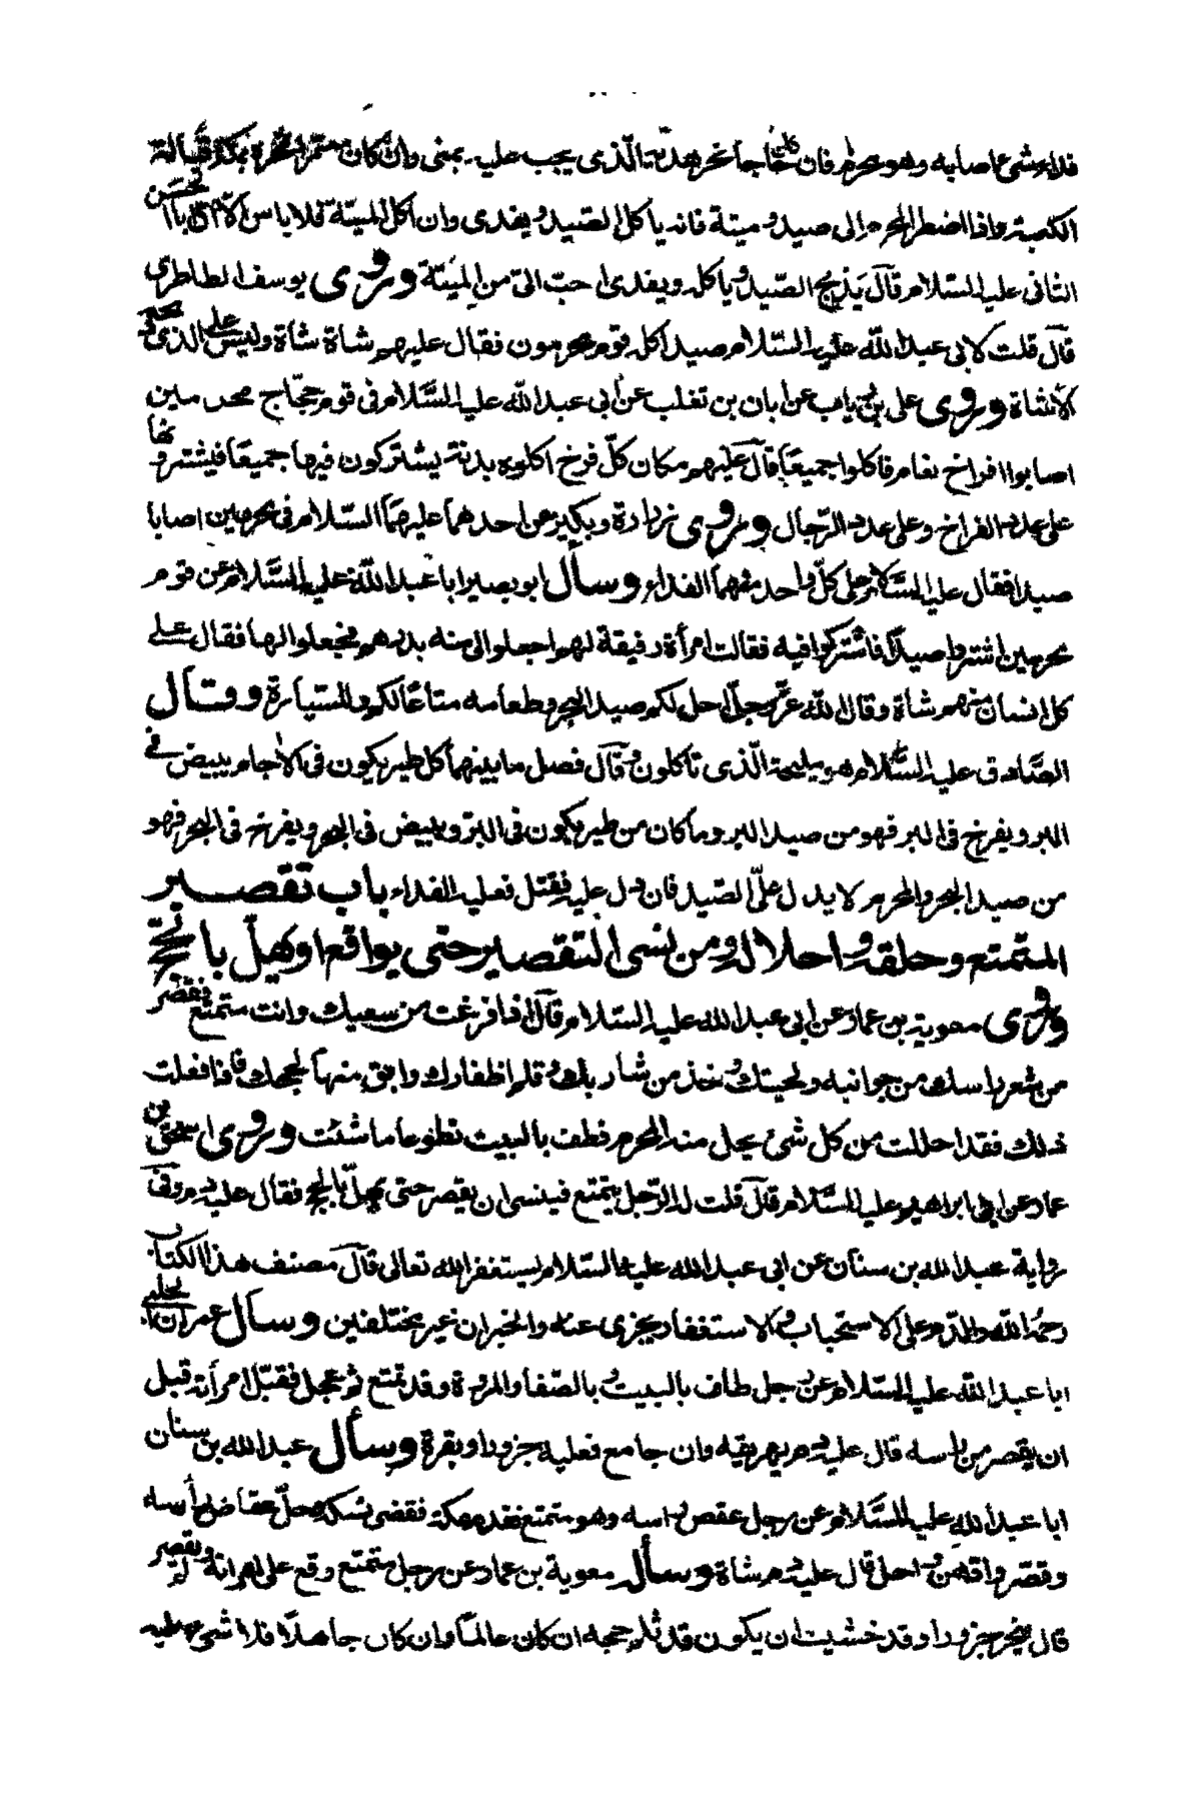 فداء شئ اصابه وهو محرم فان كان حاجا نحر هديه الذى يجب عليه بمنى وان كان معتمرا نحره بمكة قبالة
الكعبة واذا اضطر المحرم الى صيد وميتة فانه ياكل الصيد ويفدى وان اكل الميتة فلا باس الا ان ابا الحسن
الثانى عليه السلام قال يذبح الصيد وياكله ويفدى احب الى من الميتة وروى يوسف الطاطرى
قال قلت لابى عبد الله عليه السلام صيد اكله قوم محرمون فقال عليهم شاة شاة وليس على الذى ذبحه
الا شاة وروى على بن رياب عن ابان بن تغلب عن ابى عبد الله عليه السلام فى قوم حجاج محرمين
اصابوا افراخ نعام فاكلوا جميعا قال عليهم مكان كل فرخ اكلوه بدنة يشتركون فيها جميعا فيشترونها
على عدد الفراخ وعلى عدد الرجال وروى زرارة وبكير عن احدهما عليهما السلام فى محرمين اصابا
صيدا فقال عليه السلام على كل واحد منهما الفداء وسأل ابو بصير ابا عبد الله عليه السلام عن قوم
محرمين اشتروا صيدا فاشتركوا فيه فقالت امرأة رفيقة لهم اجعلوا لى منه بدرهم فجعلوا لها فقال على
كل انسان منهم شاة وقال الله عز وجل احل لكم صيد البحر وطعامه متاعا لكم وللسيارة وقال
الصادق عليه السلام هو مليحه الذى تاكلون وقال فصل ما بينهما كل طير يكون فى الاجام يبيض فى
البر ويفرخ فى البر فهو من صيد البر وما كان من طير يكون فى البر ويبيض فى البحر ويفرخ فى البحر فهو
من صيد البحر والمحرم لا يدل على الصيد فان دل عليه فقتل فعليه الفداء باب تقصير
المتمتع وحلقه واحلاله ومن نسى التقصير حتى يواقع او يهل بالحج
وروى معوية بن عمار عن ابى عبد الله عليه السلام قال اذا فرغت من سعيك وانت متمتع فقصر
من شعر راسك من جوانبه ولحيتك وخذ من شاربك وقلم اظفارك وابق منها لحجك فاذا فعلت
ذلك فقد احللت من كل شئ يحل منه المحرم فطف بالبيت تطوعا ما شئت وروى اسحق بن
عمار عن ابى ابراهيم عليه السلام قال قلت له الرجل يتمتع فينسى ان يقصر حتى يهل بالحج فقال عليه دم وفى
رواية عبد الله بن سنان عن ابى عبد الله عليه السلام يستغفر الله تعالى قال مصنف هذا الكتاب
رحمه الله والدم على الاستحباب والاستغفار يجزى عنه والخبران غير مختلفين وسأل عمران الحلبى
ابا عبد الله عليه السلام عن رجل طاف بالبيت وبالصفا والمروة وقد تمتع ثم عجل فقبل امرأته قبل
ان يقصر من راسه قال عليه دم يهريقه وان جامع فعليه جزور او بقرة وسأل عبد الله بن سنان
ابا عبد الله عليه السلام عن رجل عقص راسه وهو متمتع فقدم مكة فقضى نسكه وحل عقاص رأسه
وقصر وادهن واحل قال عليه دم شاة وسأل معوية بن عمار عن رجل متمتع وقع على امرأته ولم يقصر
قال ينحر جزورا وقد خشيت ان يكون قد ثلم حجه ان كان عالما وان كان جاهلا فلا شئ عليه